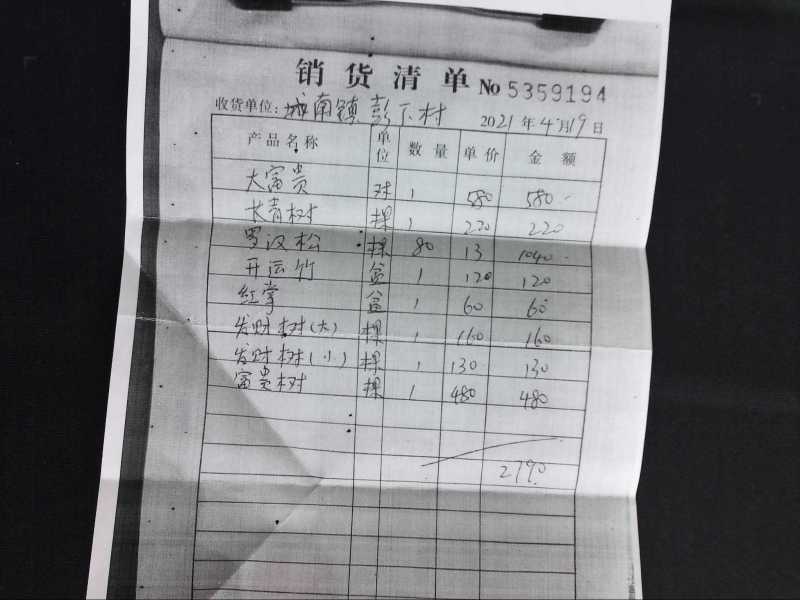 销货清单 No 5359194
收货单位:城南镇彭下村 2021年4月19日
产品名称 单位 数量 单价 金额
大富贵 对 1 580 580
长青树 棵 1 220 220
罗汉松 棵 80 13 1040
开运竹 盆 1 120 120
红掌 盆 1 60 60
发财树(大) 棵 1 160 160
发财树(小) 棵 1 130 130
富贵树 棵 1 480 480
2790